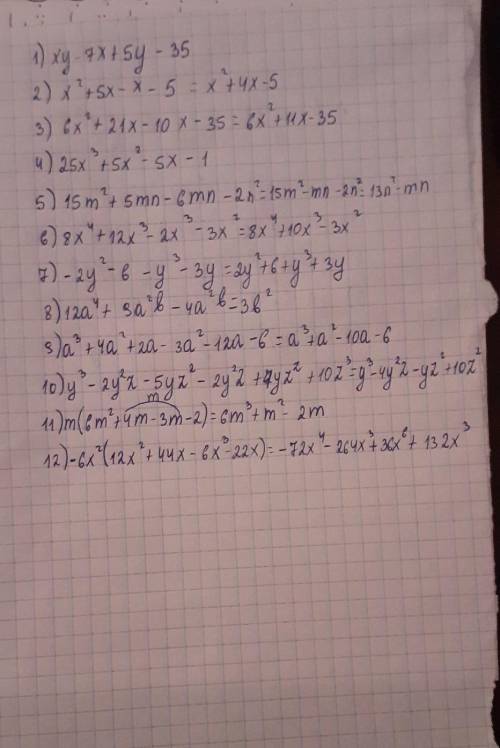 1) xy - 7x + 5y - 35
2) x² + 5x - x - 5 = x² + 4x - 5
3) 6x² + 21x - 10x - 35 = 6x² + 11x - 35
4) 25x³ + 5x² - 5x - 1
5) 15m² + 5mn - 6mn - 2n² = 15m² - mn - 2n² = 13n² - mn
6) 8x⁴ + 12x³ - 2x³ - 3x² = 8x⁴ + 10x³ - 3x²
7) - 2y² - 6 - y³ - 3y = 2y² + 6 + y³ + 3y
8) 12a⁴ + 9a²b - 4a²b = 3b²
9) a³ + 4a² + 2a - 3a² - 12a - 6 = a³ + a² - 10a - 6
10) y³ - 2y²z - 5yz² - 2y²z + 4yz² + 10z³ = y³ - 4y²z - yz² + 10z²
11) m(6m² + 4m - 3m - 2) = 6m³ + m² - 2m
m
12) -6x²(12x² + 44x - 6x³ - 22x) = -72x⁴ - 264x³ + 36x⁶ + 132x³